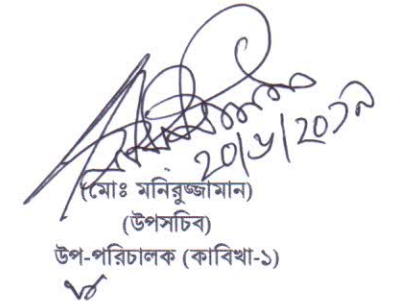 ২০/৬/২০১৯
(মোঃ মনিরুজ্জামান)
(উপসচিব)
উপ-পরিচালক (কাবিখা-১)